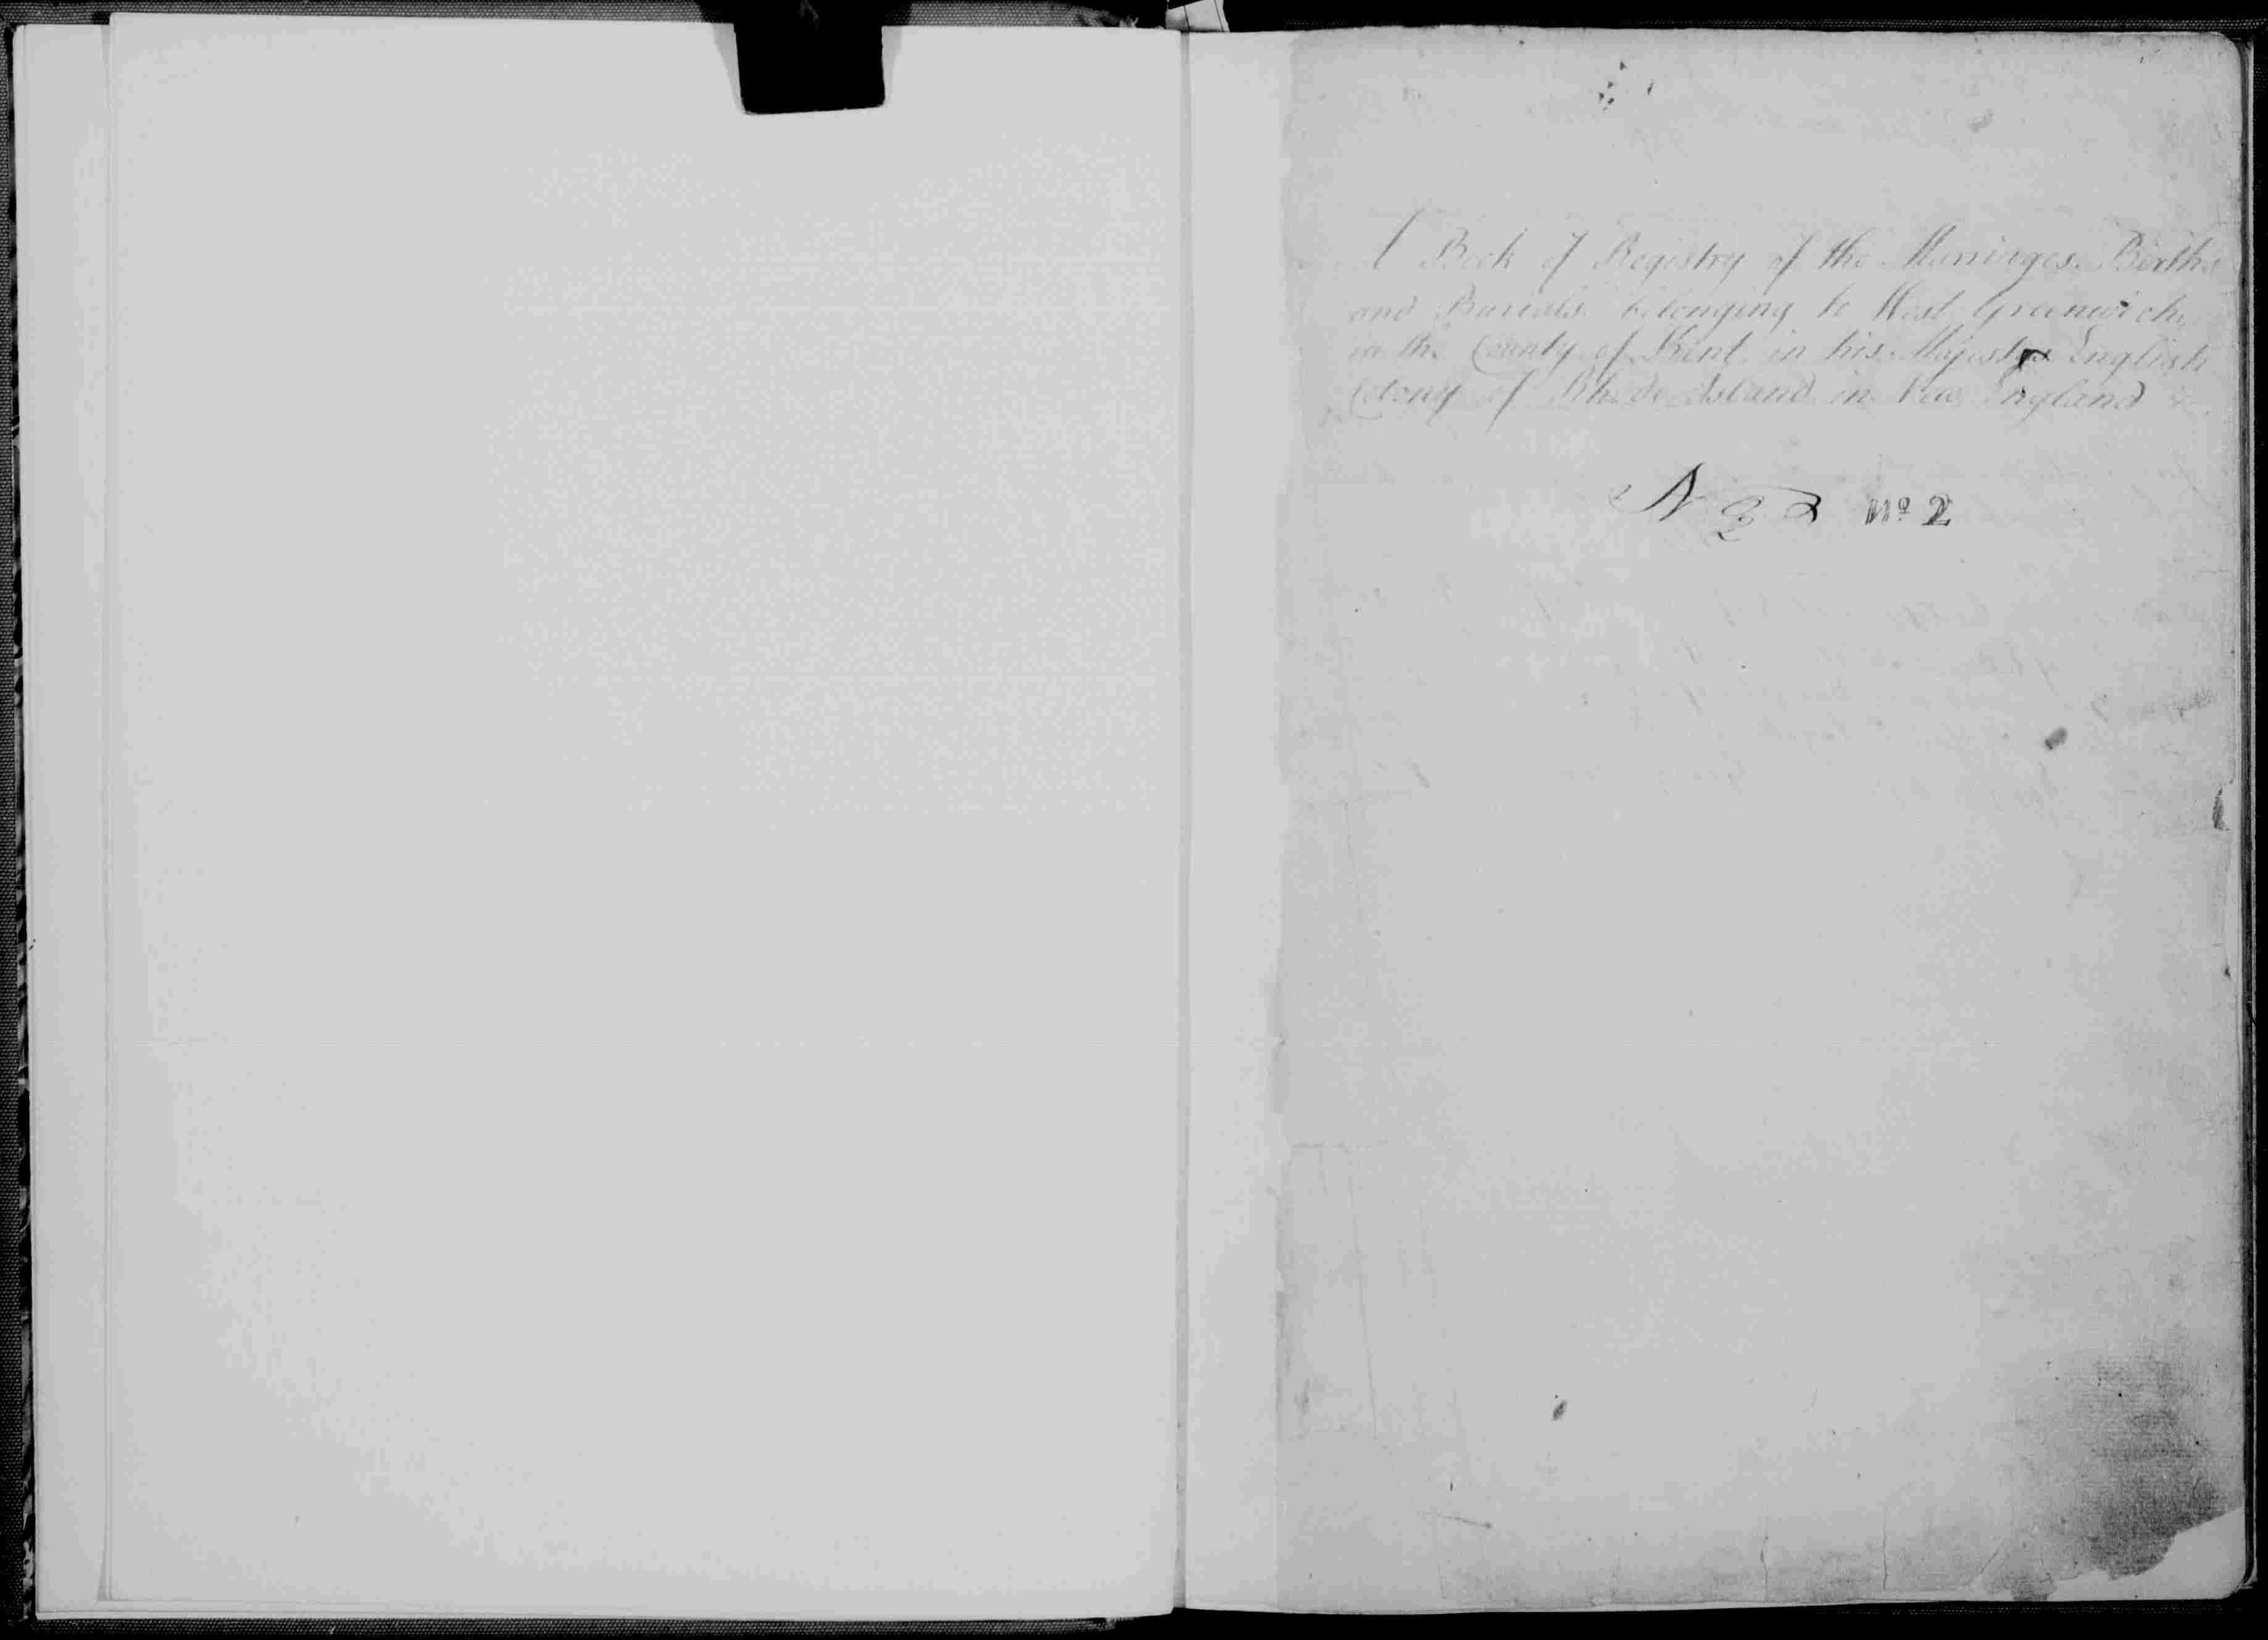 A Book of Registry of the Marriages Births
and Burials belonging to West Greenwich
in the County of Kent in his Majestys English
Colony of Rhode Island in New England &c
No 2 No 2